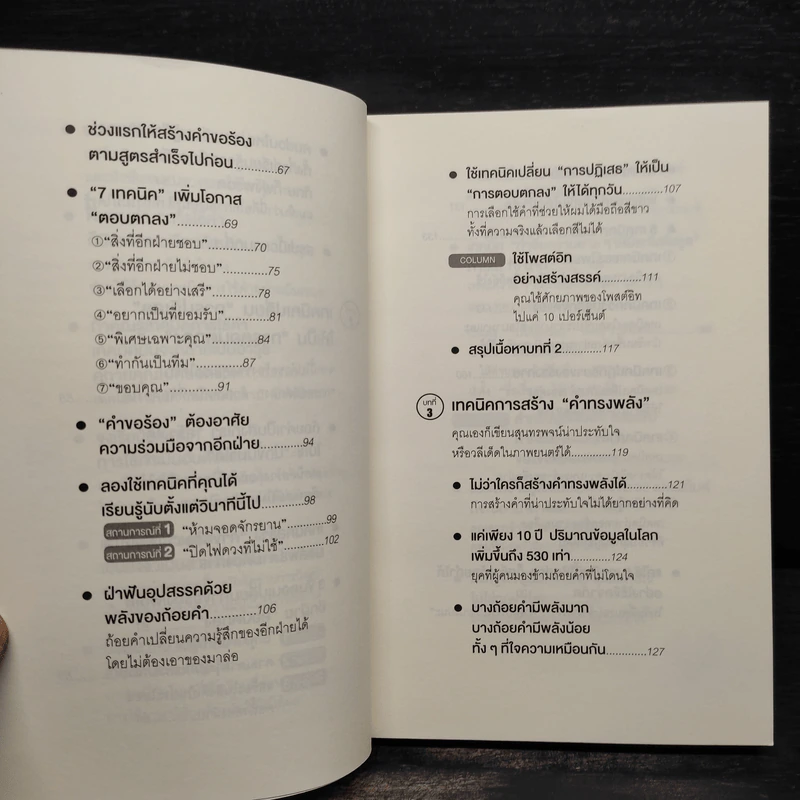 ● ช่วงแรกให้สร้างคำขอร้อง
ตามสูตรสำเร็จไปก่อน.............67
● "7 เทคนิค" เพิ่มโอกาส
"ตอบตกลง"..............69
①"สิ่งที่อีกฝ่ายชอบ"..............70
②"สิ่งที่อีกฝ่ายไม่ชอบ"..............75
③"เลือกได้อย่างเสรี"..............78
④"อยากเป็นที่ยอมรับ"..............81
⑤"พิเศษเฉพาะคุณ"..............84
⑥"ทำกันเป็นทีม"..............87
⑦"ขอบคุณ"..............91
● "คำขอร้อง" ต้องอาศัย
ความร่วมมือจากอีกฝ่าย..............94
● ลองใช้เทคนิคที่คุณได้
เรียนรู้นับตั้งแต่วินาทีนี้ไป..............98
สถานการณ์ที่ 1 "ห้ามจอดจักรยาน"..............99
สถานการณ์ที่ 2 "ปิดไฟดวงที่ไม่ใช้"..............102
● ฝ่าฟันอุปสรรคด้วย
พลังของถ้อยคำ..............106
ถ้อยคำเปลี่ยนความรู้สึกของอีกฝ่ายได้
โดยไม่ต้องเอาของมาล่อ
● ใช้เทคนิคเปลี่ยน "การปฏิเสธ" ให้เป็น
"การตอบตกลง" ให้ได้ทุกวัน..............107
การเลือกใช้คำที่ช่วยให้ผมได้มือถือสีขาว
ทั้งที่ความจริงแล้วเลือกสีไม่ได้
COLUMN ใช้โพสต์อิท
อย่างสร้างสรรค์..............111
คุณใช้ศักยภาพของโพสต์อิท
ไปแค่ 10 เปอร์เซ็นต์
● สรุปเนื้อหาบทที่ 2.............117
บทที่ 3 เทคนิคการสร้าง "คำทรงพลัง"
คุณเองก็เขียนสุนทรพจน์น่าประทับใจ
หรือวลีเด็ดในภาพยนตร์ได้.............119
● ไม่ว่าใครก็สร้างคำทรงพลังได้..............121
การสร้างคำที่น่าประทับใจไม่ได้ยากอย่างที่คิด
● แค่เพียง 10 ปี ปริมาณข้อมูลในโลก
เพิ่มขึ้นถึง 530 เท่า..............124
ยุคที่ผู้คนมองข้ามถ้อยคำที่ไม่โดนใจ
● บางถ้อยคำมีพลังมาก
บางถ้อยคำมีพลังน้อย
ทั้ง ๆ ที่ใจความเหมือนกัน..............127